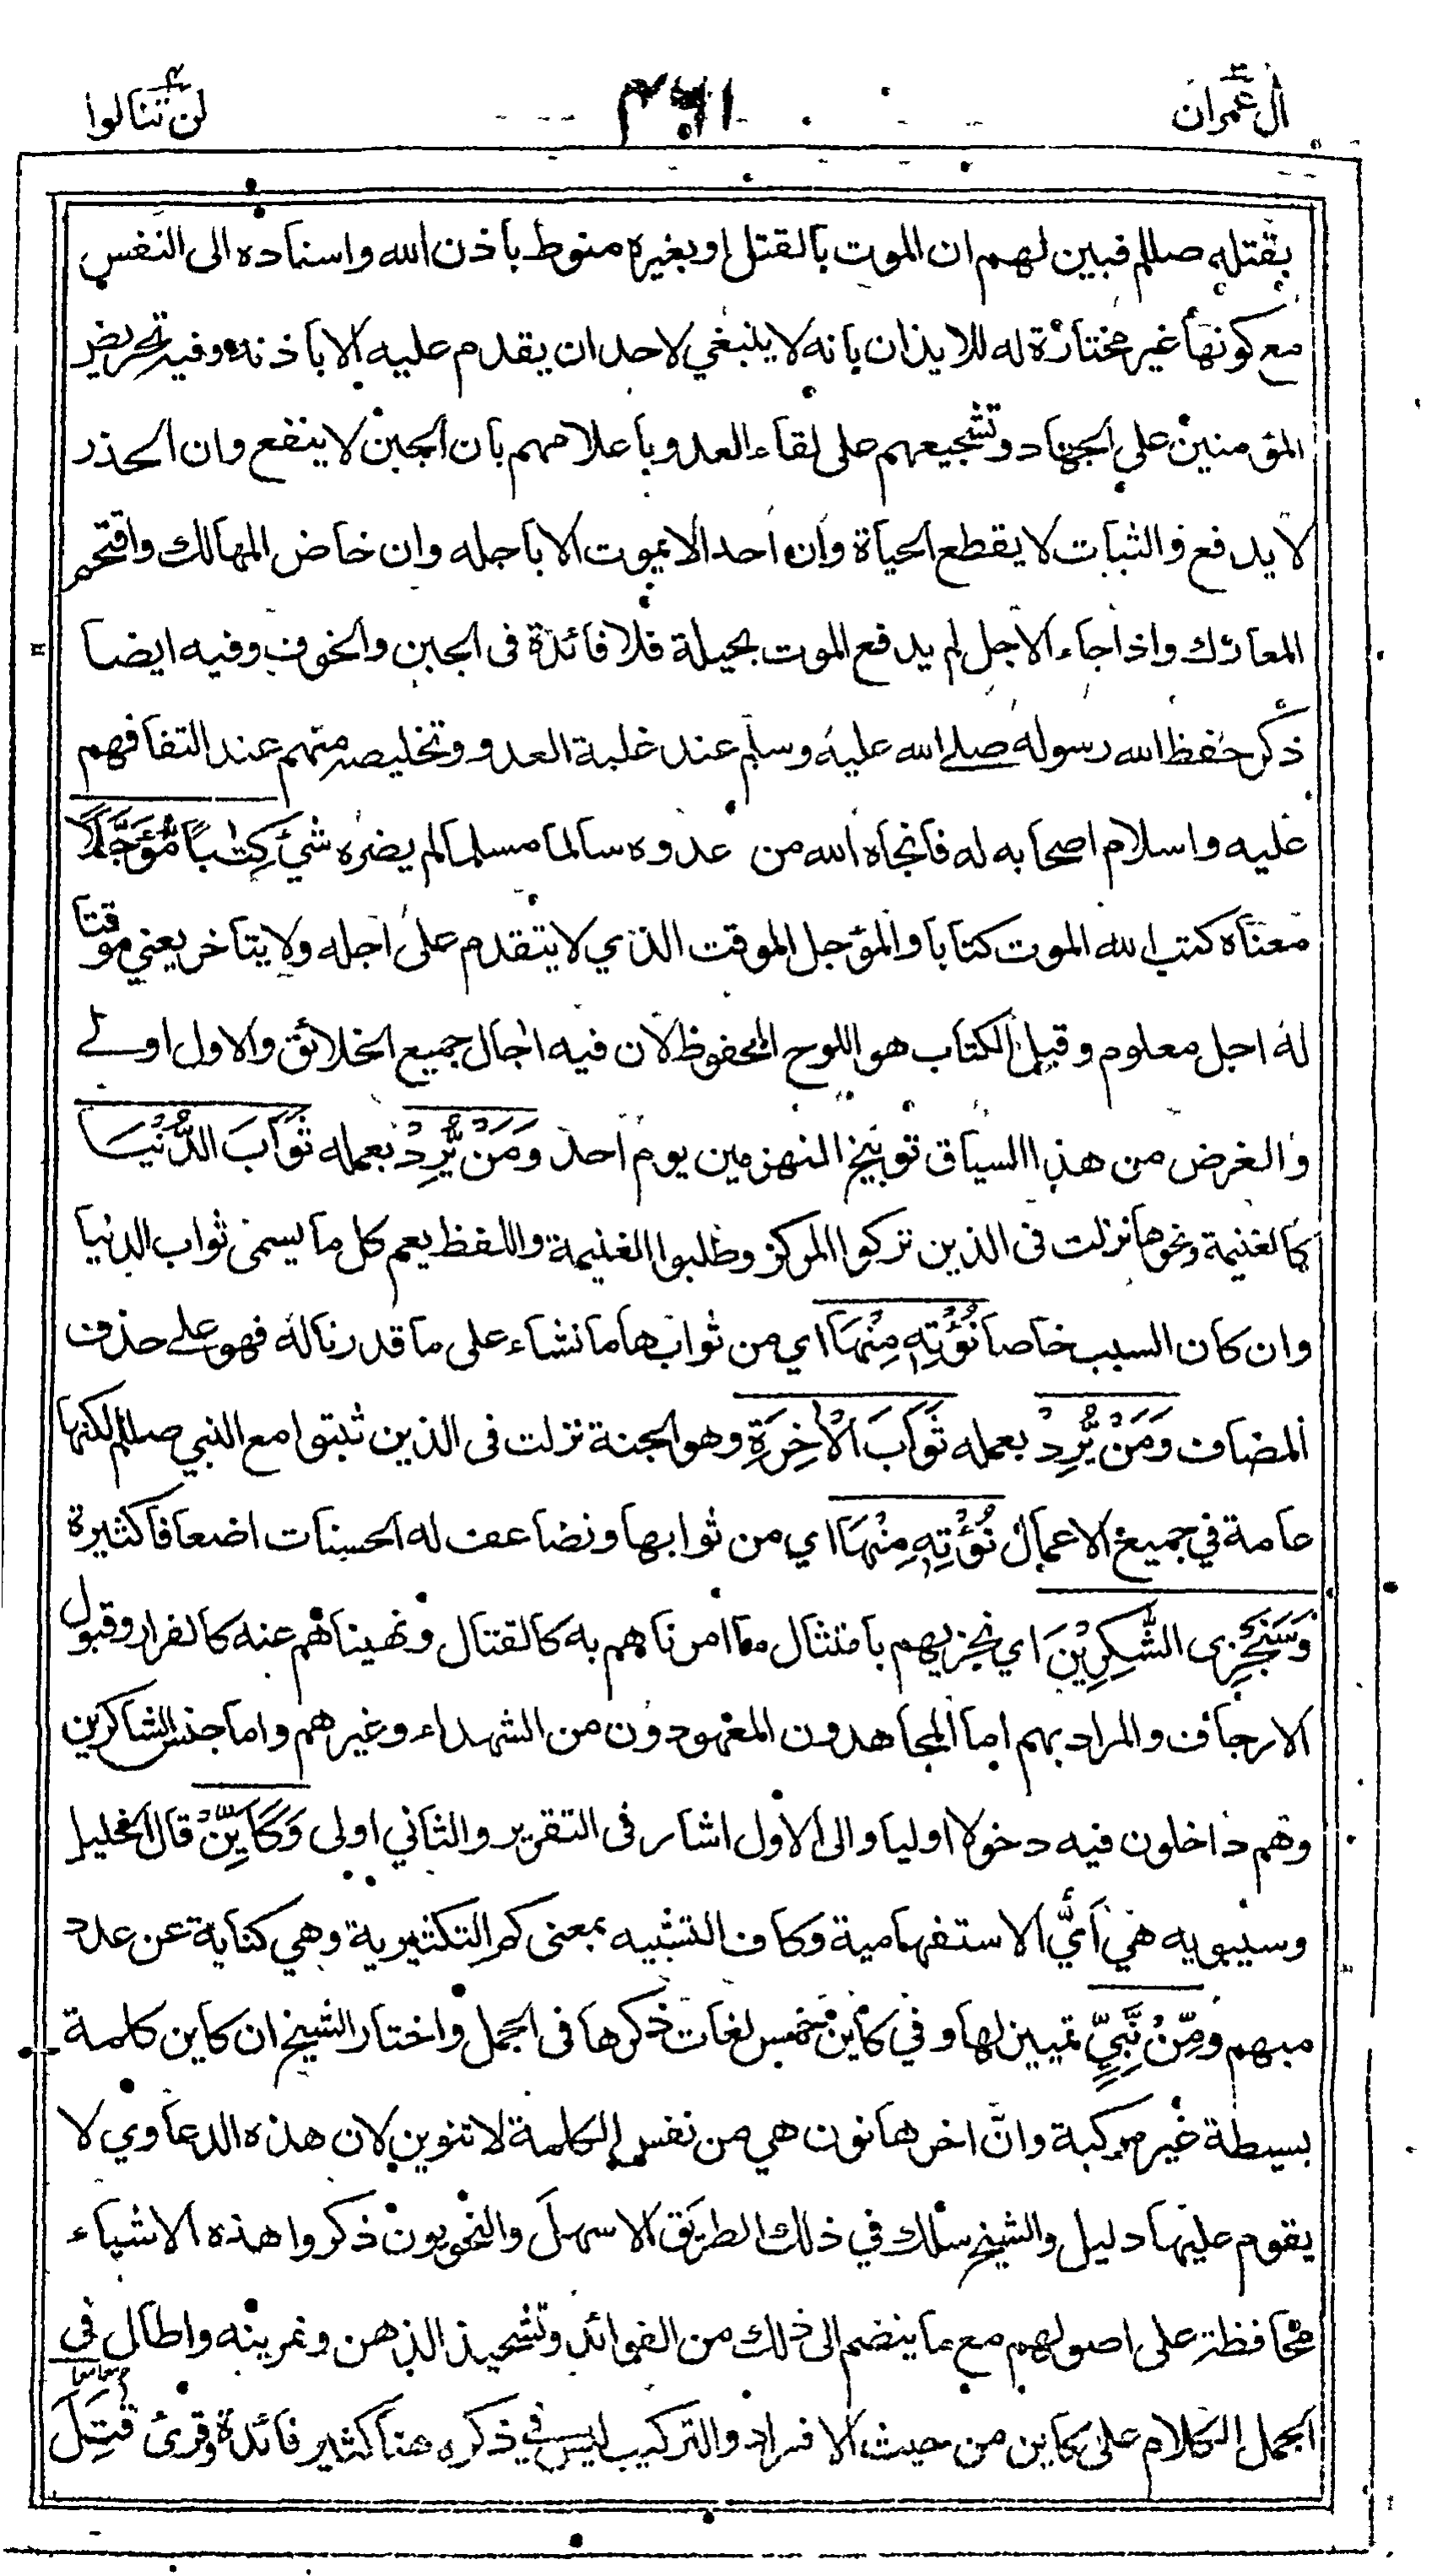 اٰل عمران ٣
لن تنالوا ٤
بقتله صللم فبين لهم ان الموت بالقتل او بغيره منوط باذن الله واسناده الى النفس
مع كونها غير مختارة له للايذان بانه لا ينبغي لاحد ان يقدم عليه الا باذنه وفيه تحريض
المؤمنين على الجهاد وتشجيعهم على لقاء العدو باعلامهم بان الجبن لا ينفع وان الحذر
لا يدفع والثبات لا يقطع الحياة وان احدا لا يموت الا باجله وان خاض المهالك واقتحم
المعارك واذا جاء الاجل لم يدفع الموت بحيلة فلا فائدة فى الجبن والخوف وفيه ايضا
ذكر حفظ الله رسوله صلى الله عليه وسلم عند غلبة العدو وتخليصه منهم عند التفافهم
عليه واسلام اصحابه له فانجاه الله من عدوه سالما مسلما لم يضره شيْ كِتٰبًا مُّؤَجَّلًا
معناه كتب الله الموت كتابا والمؤجل الموقت الذي لا يتقدم على اجله ولا يتاخر يعني موقتا
له اجل معلوم وقيل الكتاب هو اللوح المحفوظ لان فيه اجال جميع الخلائق والاول اولے
والغرض من هذا السياق توبيخ المنهزمين يوم احد وَمَنْ يُّرِدْ بعمله ثَوَابَ الدُّنْيَا
كالغنيمة ونحوها نزلت فى الذين تركوا المركز وطلبوا الغنيمة واللفظ يعم كل ما يسمى ثواب الدنيا
وان كان السبب خاصا نُؤْتِهٖ مِنْهَا اي من ثوابها ما نشاء على ما قدرنا له فهو علے حذف
المضاف وَمَنْ يُّرِدْ بعمله ثَوَابَ الْاٰخِرَةِ وهو الجنة نزلت فى الذين ثبتوا مع النبي صللم لكنها
عامة في جميع الاعمال نُؤْتِهٖ مِنْهَا اي من ثوابها ونضاعف له الحسنات اضعافا كثيرة
وَسَنَجْزِى الشّٰكِرِيْنَ اي نجزيهم بامتثال ما امرناهم به كالقتال ونهيناهم عنه كالفرار وقبول
الارجاف والمراد بهم اما المجاهدون المعهودون من الشهداء وغيرهم واما جنس الشاكرين
وهم داخلون فيه دخولا اوليا والى الاول اشار فى التقرير والثاني اولى وَكَاَيِّنْ قال الخليل
وسيبويه هي اَيُّ الاستفهامية وكاف التشبيه بمعنى كم التكثيرية وهي كناية عن عدد
مبهم ومِّنْ نَّبِيٍّ تمييز لها وفي كأين خمس لغات ذكرها فى الجمل واختار الشيخ ان كاين كلمة
بسيطة غير مركبة وانّ اخرها نون هي من نفس الكلمة لا تنوين لان هذه الدعاوي لا
يقوم عليها دليل والشيخ سلك في ذلك الطريق الاسهل والنحويون ذكروا هذه الاشياء
محافظة على اصولهم مع ما ينضم الى ذلك من الفوائد وتشحيذ الذهن وتمرينه واطال في
الجمل الكلام على كاين من حيث الافراد والتركيب ليس في ذكره هنا كثير فائدة وقرئ قُتِلَ